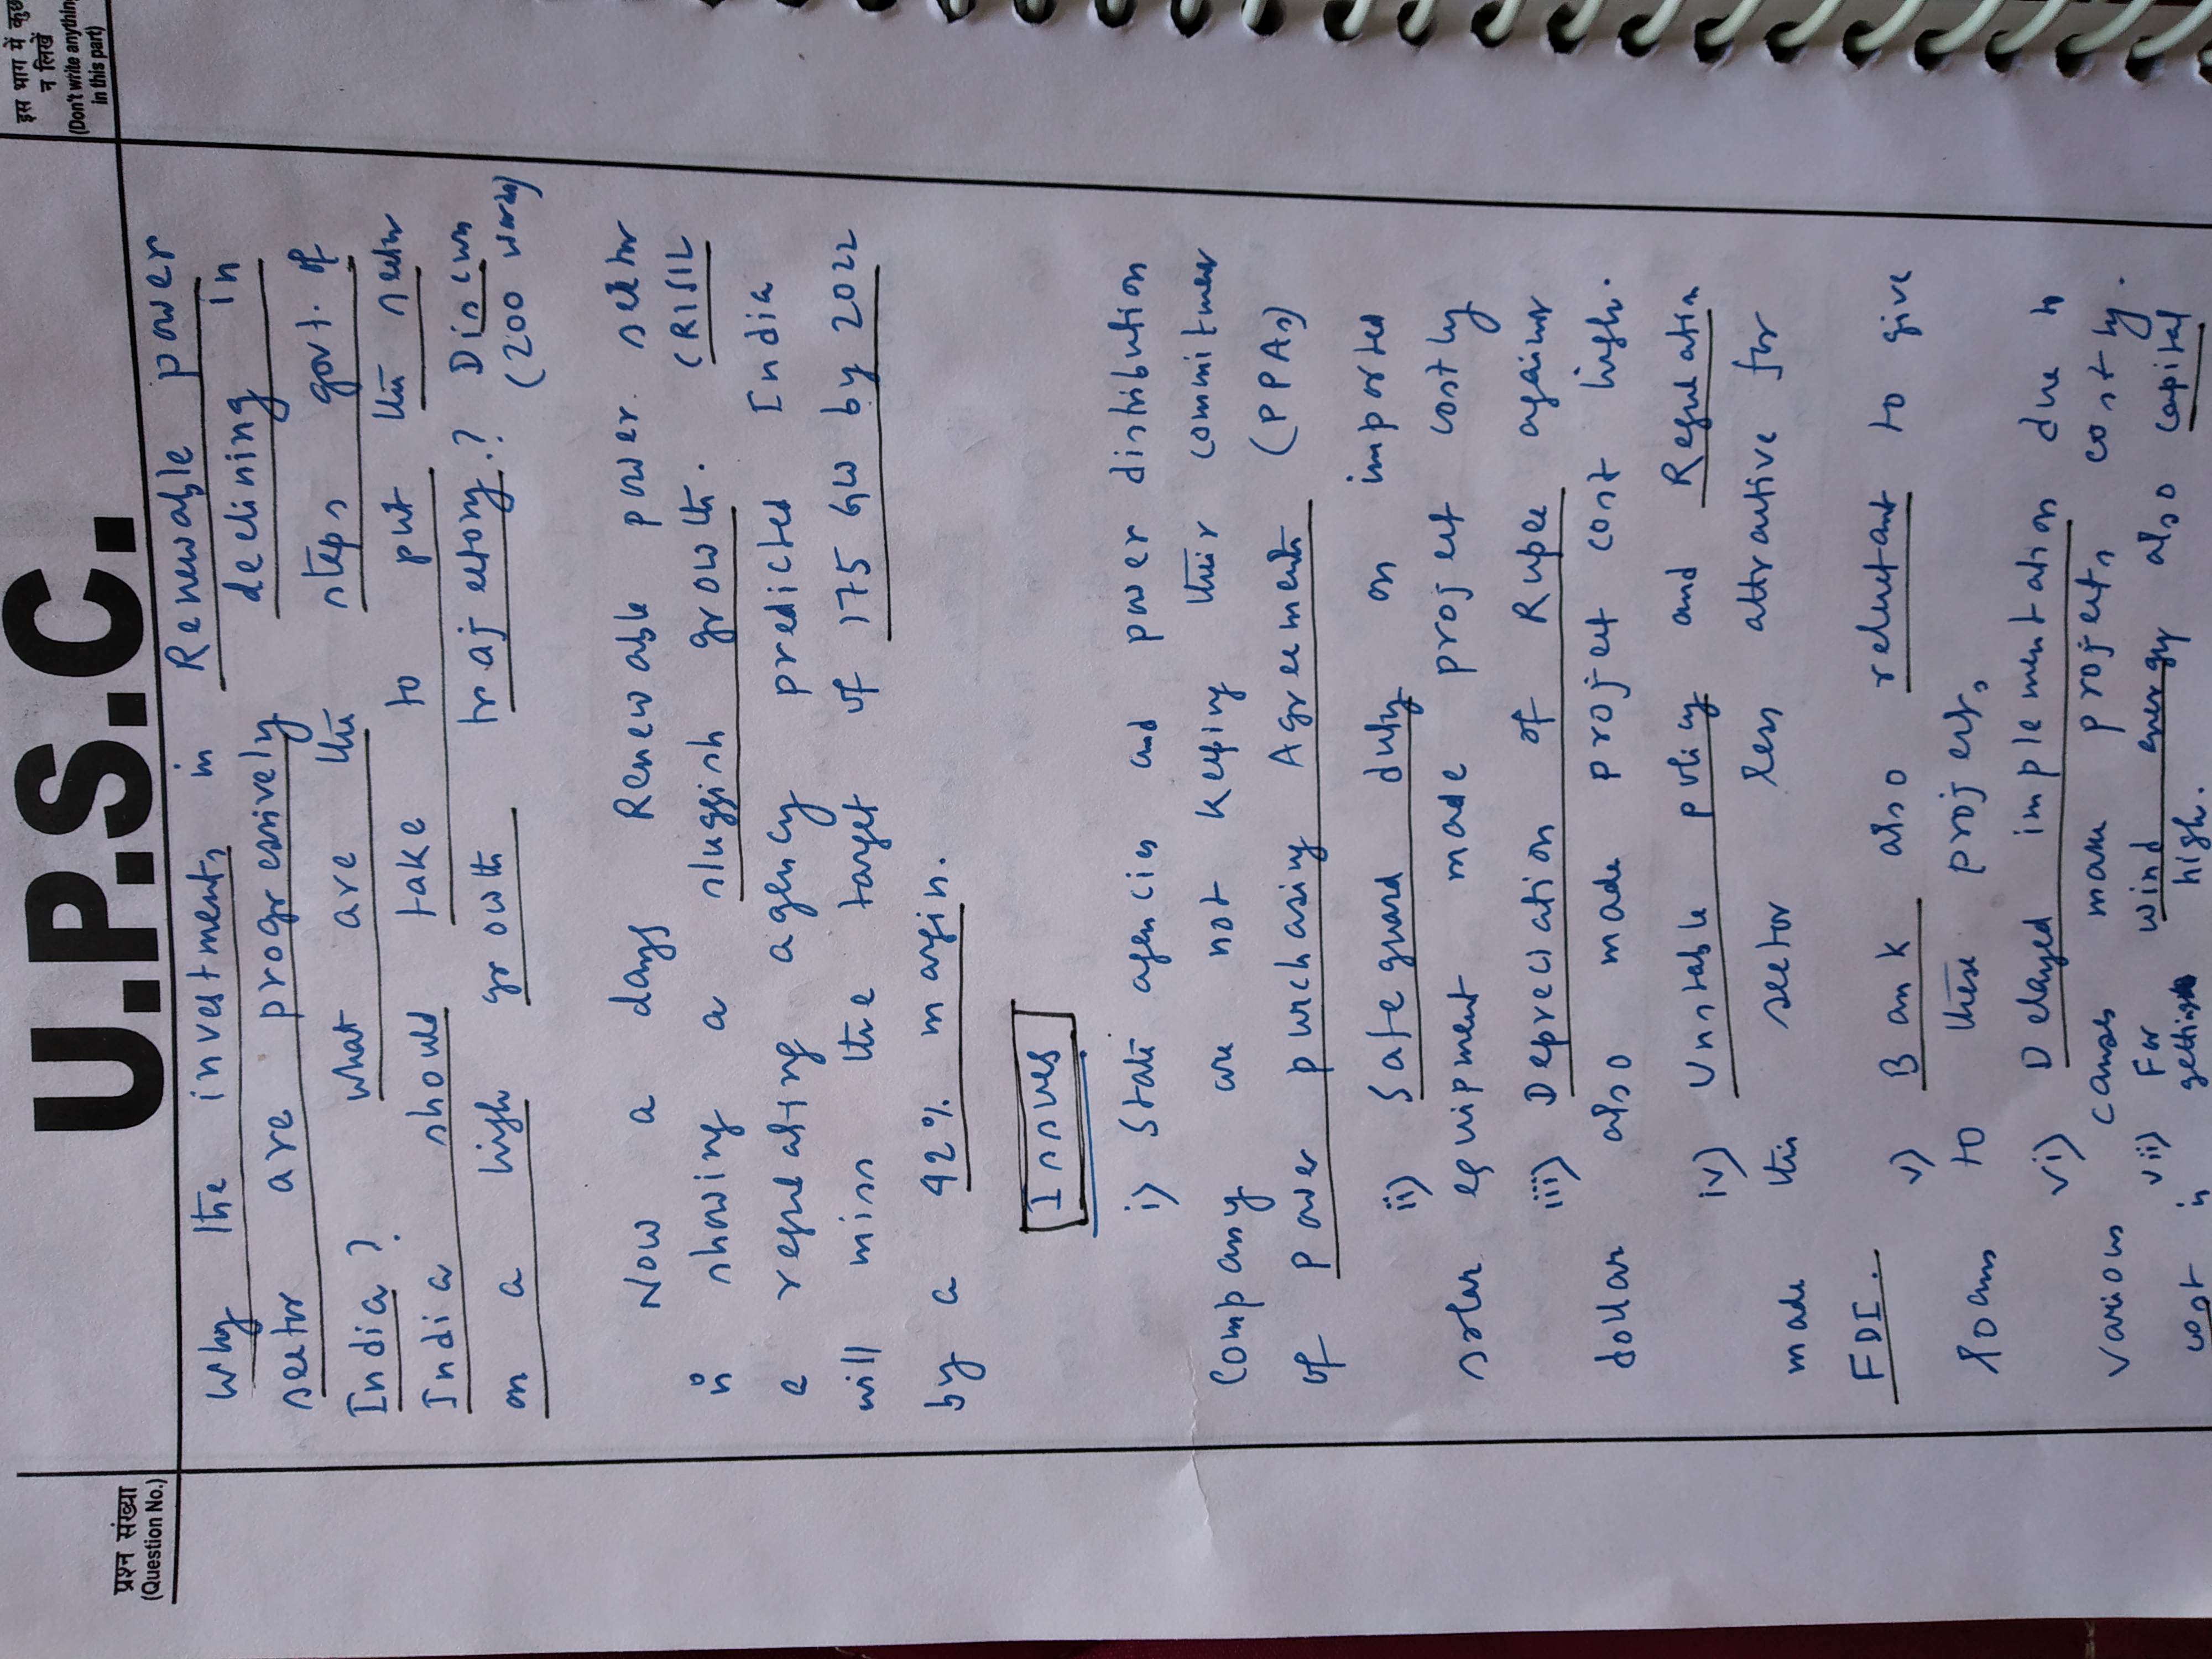 इस भाग में कुछ
न लिखें
(Don't write anything
in this part)
U.P.S.C.
प्रश्न संख्या
(Question No.)
Why the investments in Renewable power
sector are progressively declining in
India? What are the steps govt. of
India should take to put this sector
on a high growth trajectory.? Discuss
(200 words)
Now a days Renewable power sector
is showing a sluggish growth. CRISIL
a regulating agency predicted India
will miss the target of 175 GW by 2022
by a 42% margin.
Issues
i) State agencies and power distribution
Company are not keeping their commitment
of Power purchasing Agreements (PPAs)
ii) Safe guard duty on imported
solar equipment made project costly
iii) Depreciation of Rupee against
dollar also made project cost high.
iv) Unstable policy and Regulation
made this sector less attractive for
FDI.
v) Bank also reluctant to give
loans to these projects
vi) Delayed implementation due to
various causes make projects costly.
vii) For wind energy also capital
cost is getting high.